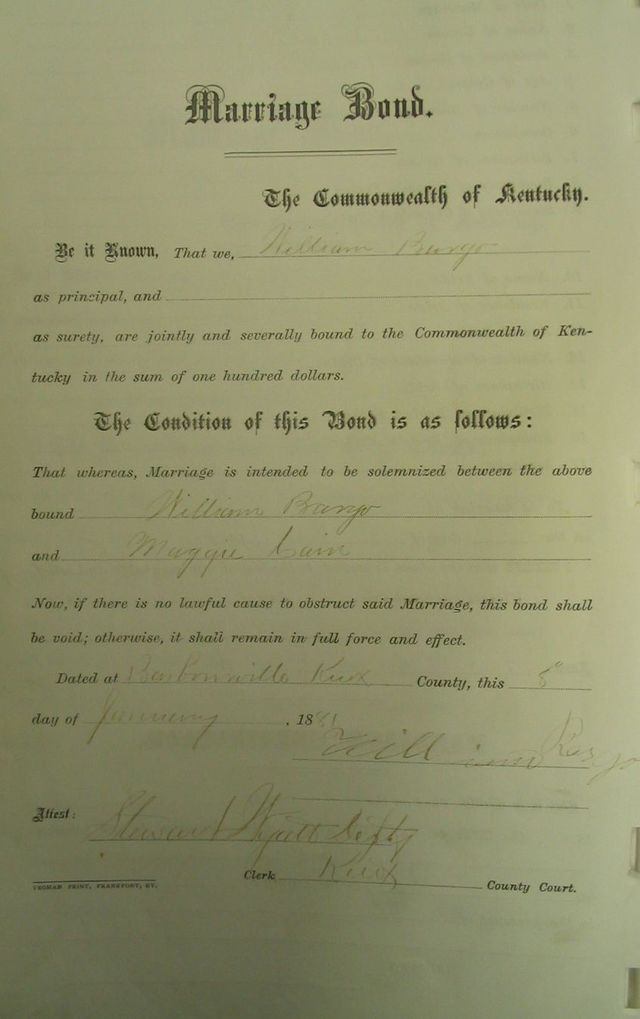 Marriage Bond.
The Commonwealth of Kentucky.
Be it Known, That we, William Bargo
as principal, and
as surety, are jointly and severally bound to the Commonwealth of Ken-
tucky in the sum of one hundred dollars.
The Condition of this Bond is as follows:
That whereas, Marriage is intended to be solemnized between the above
bound William Bargo
and Maggie Cain
Now, if there is no lawful cause to obstruct said Marriage, this bond shall
be void; otherwise, it shall remain in full force and effect.
Dated at Barbourville Knox County, this 8"
day of January, 188
William Bargo
Attest: Stewart Wyatt
Clerk Knox County Court.
YEOMAN PRINT, FRANKFORT, KY.